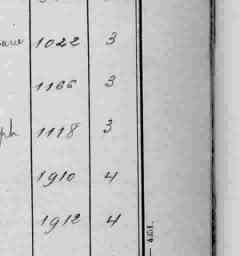 1022 3
1166 3
1118 3
1910 4
1912 4